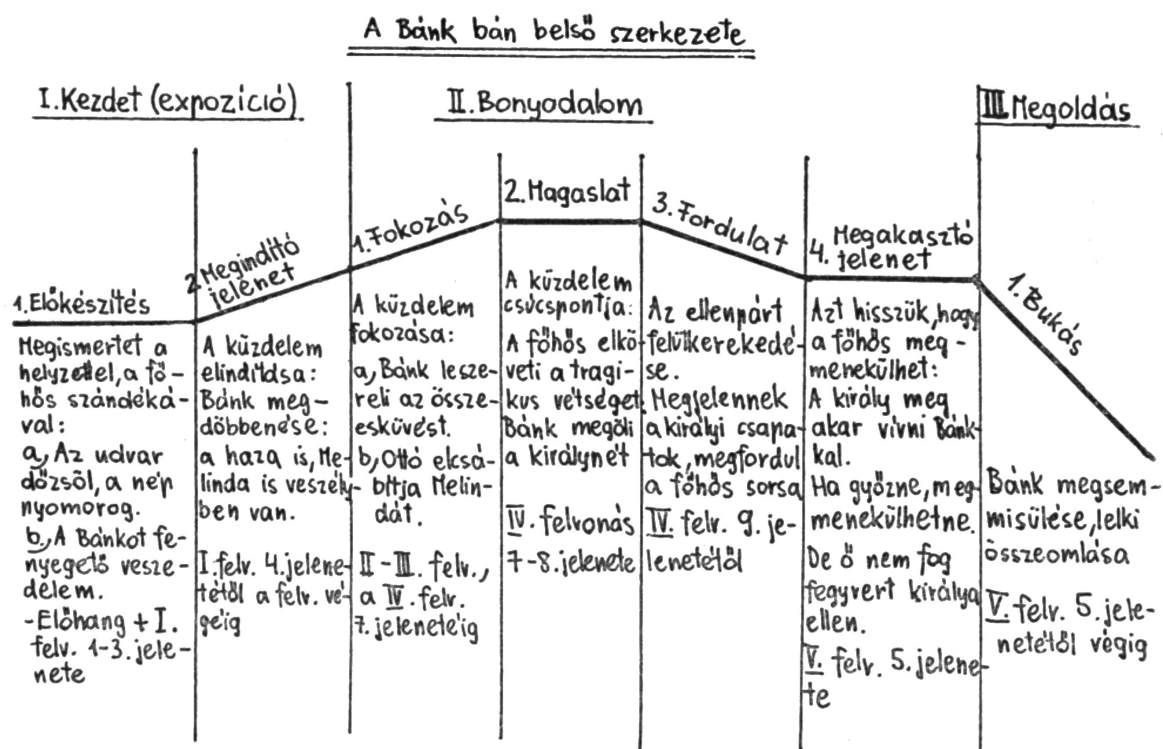 A Bánk bán belső szerkezete
I. Kezdet (expozíció)
1. Előkészítés
Megismertet a
helyzettel, a fő-
hős szándéká-
val:
a, Az udvar
dőzsöl, a nép
nyomorog.
b, A Bánkot fe-
nyegető vesze-
delem.
- Előhang + I.
felv. 1-3. jele-
nete
2. Megindító
jelenet
A küzdelem
elindítása:
Bánk meg-
döbbenése:
a haza is, Me-
linda is veszély-
ben van.
I. felv. 4. jelene-
tétől a felv. vé-
géig
II. Bonyodalom
1. Fokozás
A küzdelem
fokozása:
a, Bánk lesze-
reli az össze-
esküvést.
b, Ottó elcsá-
bítja Melin-
dát.
II - III. felv.,
a IV. felv.
7. jelenetéig
2. Magaslat
A küzdelem
csúcspontja:
A főhős elkö-
veti a tragi-
kus vétséget
Bánk megöli
a királynét
IV. felvonás
7-8. jelenete
3. Fordulat
Az ellenpárt
felülkerekedé-
se.
Megjelennek
a királyi csapa-
tok, megfordul
a főhős sorsa
IV. felv. 9. je-
lenetétől
4. Megakasztó
jelenet
Azt hisszük, hogy
a főhős meg-
menekülhet:
A király meg
akar vívni Bánk-
kal.
Ha győzne, meg-
menekülhetne.
De ő nem fog
fegyvert királya
ellen.
V. felv. 5. jelene-
te
III. Megoldás
1. Bukás
Bánk megsem-
misülése, lelki
összeomlása
V. felv. 5. jele-
netétől végig